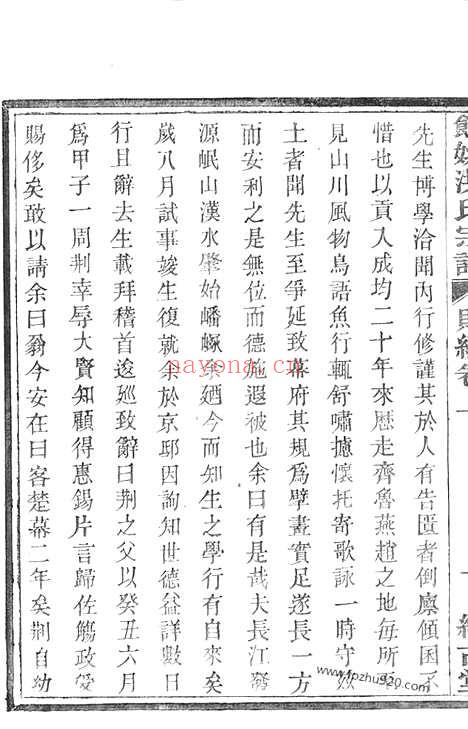 餘姚洪氏宗譜
貽編卷一
先生博學洽聞內行修謹其於人有告匱者倒廪傾囷不
惜也以貢入成均二十年來歷走齊魯燕趙之地每所
見山川風物鳥語魚行輒舒嘯攄懷托寄歌詠一時守
土者聞先生至爭延致幕府其規爲擘畫實足遂長一方
而安利之是無位而德施遐被也余曰有是哉夫長江發
源岷山漢水肇始嶓冢廼今而知生之學行有自來矣
歲八月試事竣生復就余於京邸因詢知世德益詳數日
行且辭去生載拜稽首逡廵致辭曰荆之父以癸丑六月
爲甲子一周荆幸辱大賢知顧得惠錫片言歸佐觴政受
賜侈矣敢以請余曰翁今安在曰客楚幕二年矣荆自幼
nayona.cn
www.fpzhu920.com